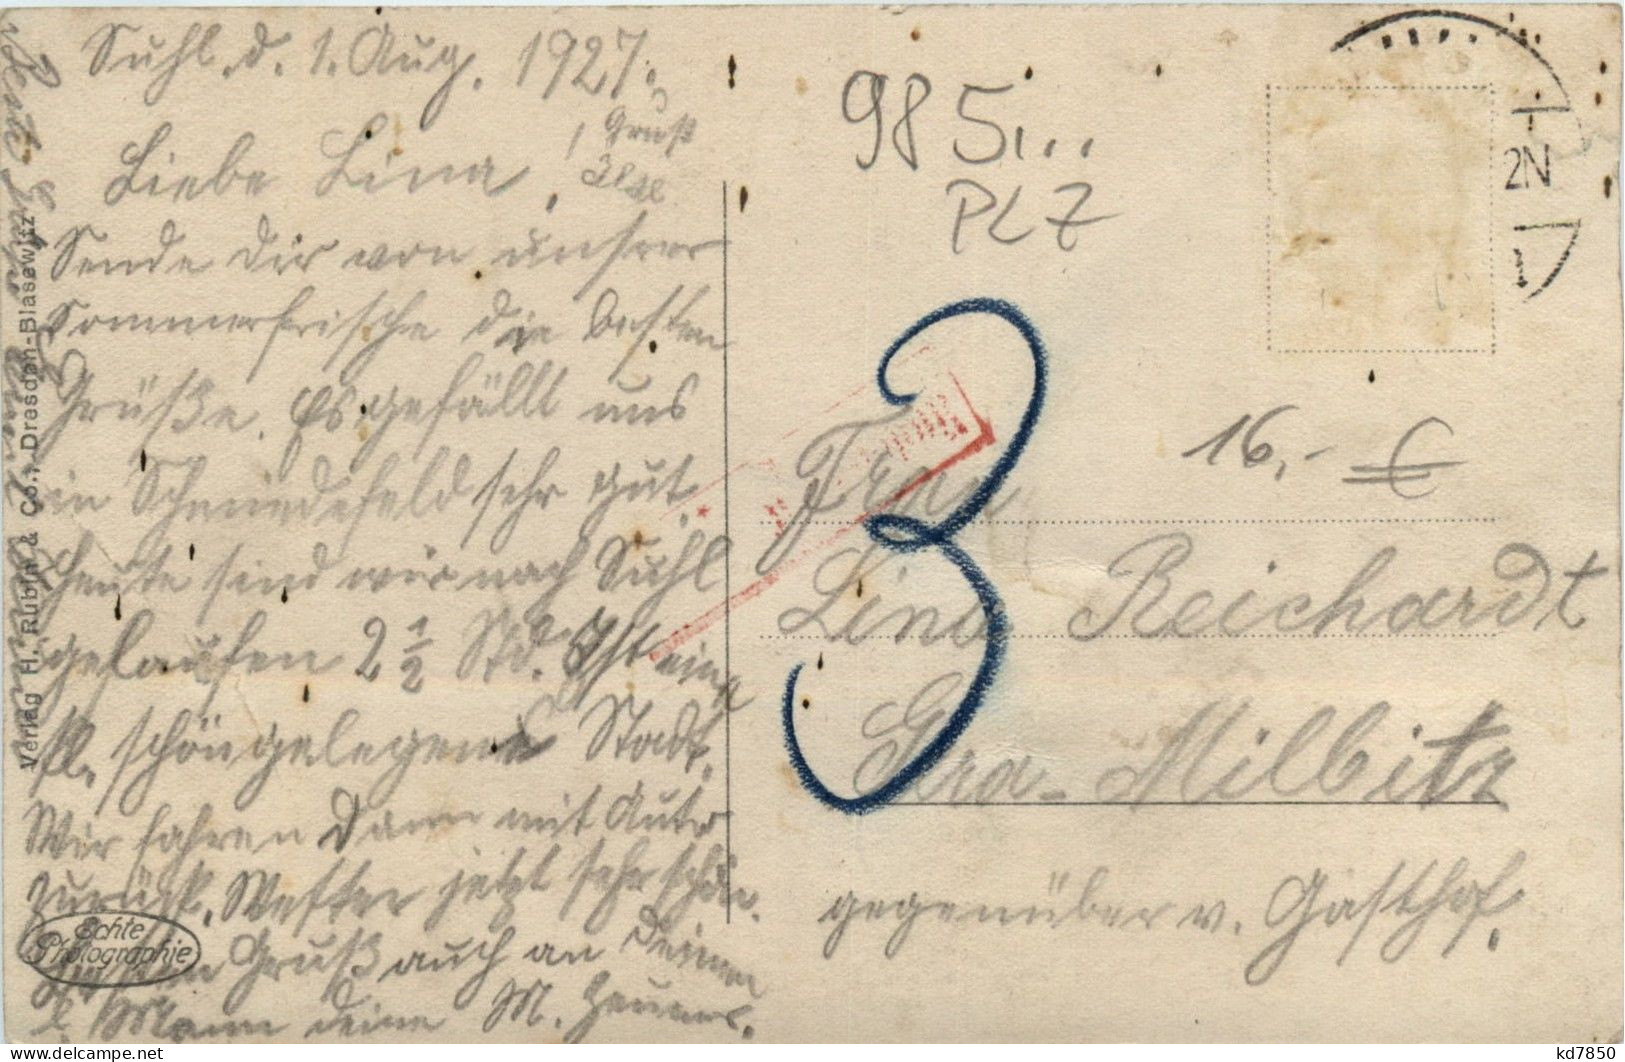 Suhl d. 1. Aug. 1927.
Liebe Lina!
Gruß
Sende dir von unsrer
Sommerfrische die besten
Grüße. Es gefällt uns
in Schmiedefeld sehr gut.
Heute sind wir nach Suhl
gelaufen 2 1/2 Std. Ist eine
kl. schöngelegene Stadt.
Wir fahren dann mit Auto
zurück. Wetter jetzt sehr schön.
Gruß auch an Deinen
l. Mann deine M.
Verlag H. Rubin & Co., Dresden-Blasewitz
Echte
Photographie
98 5...
PLZ
2N
1
3
16,- €
Frau
Lina Reichardt
Gera-Milbitz
gegenüber v. Gasthof.
kd7850